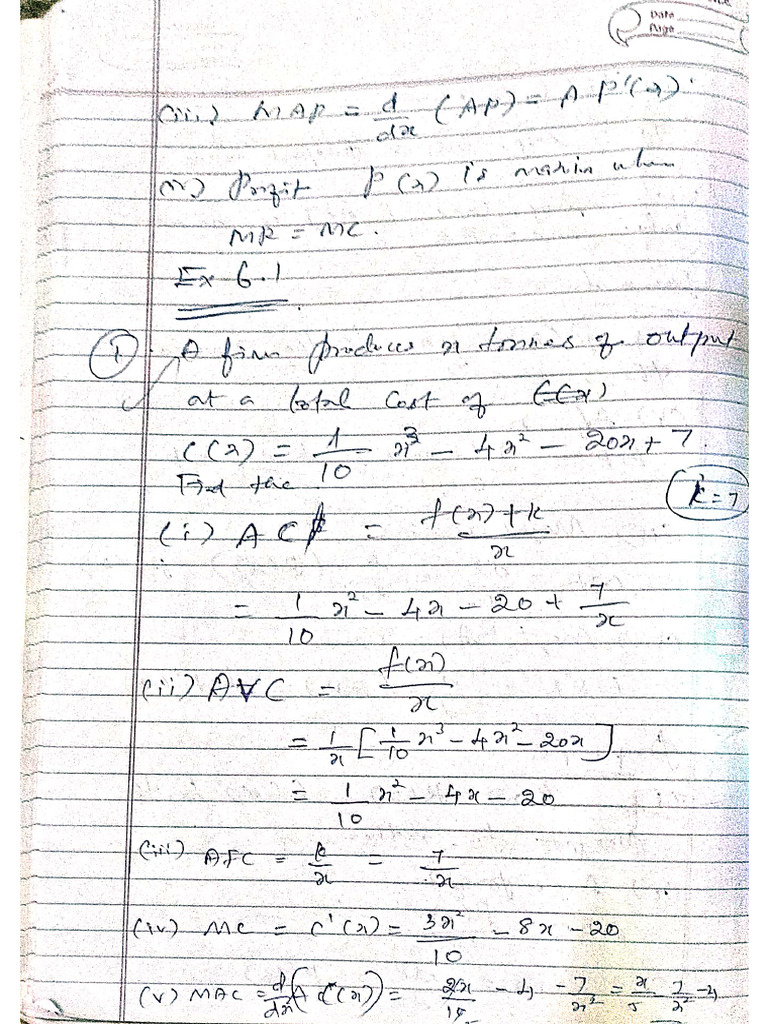 Date
Page
(iii) MAP = d/dx (AP) = A P'(x).
(iv) Profit P(x) is maxim when
MR = MC.
Ex 6.1
① A firm produces x tonnes of output
at a total cost of C(x)
C(x) = 1/10 x³ - 4x² - 20x + 7.
Find the
k = 7
(i) AC = f(x)+k / x
= 1/10 x² - 4x - 20 + 7/x
(ii) AVC = f(x)/x
= 1/x [1/10 x³ - 4x² - 20x]
= 1/10 x² - 4x - 20
(iii) AFC = k/x = 7/x
(iv) MC = C'(x) = 3x²/10 - 8x - 20
(v) MAC = d/dx (A C(x)) = 2x/10 - 4 - 7/x² = x/5 - 7/x² - 4